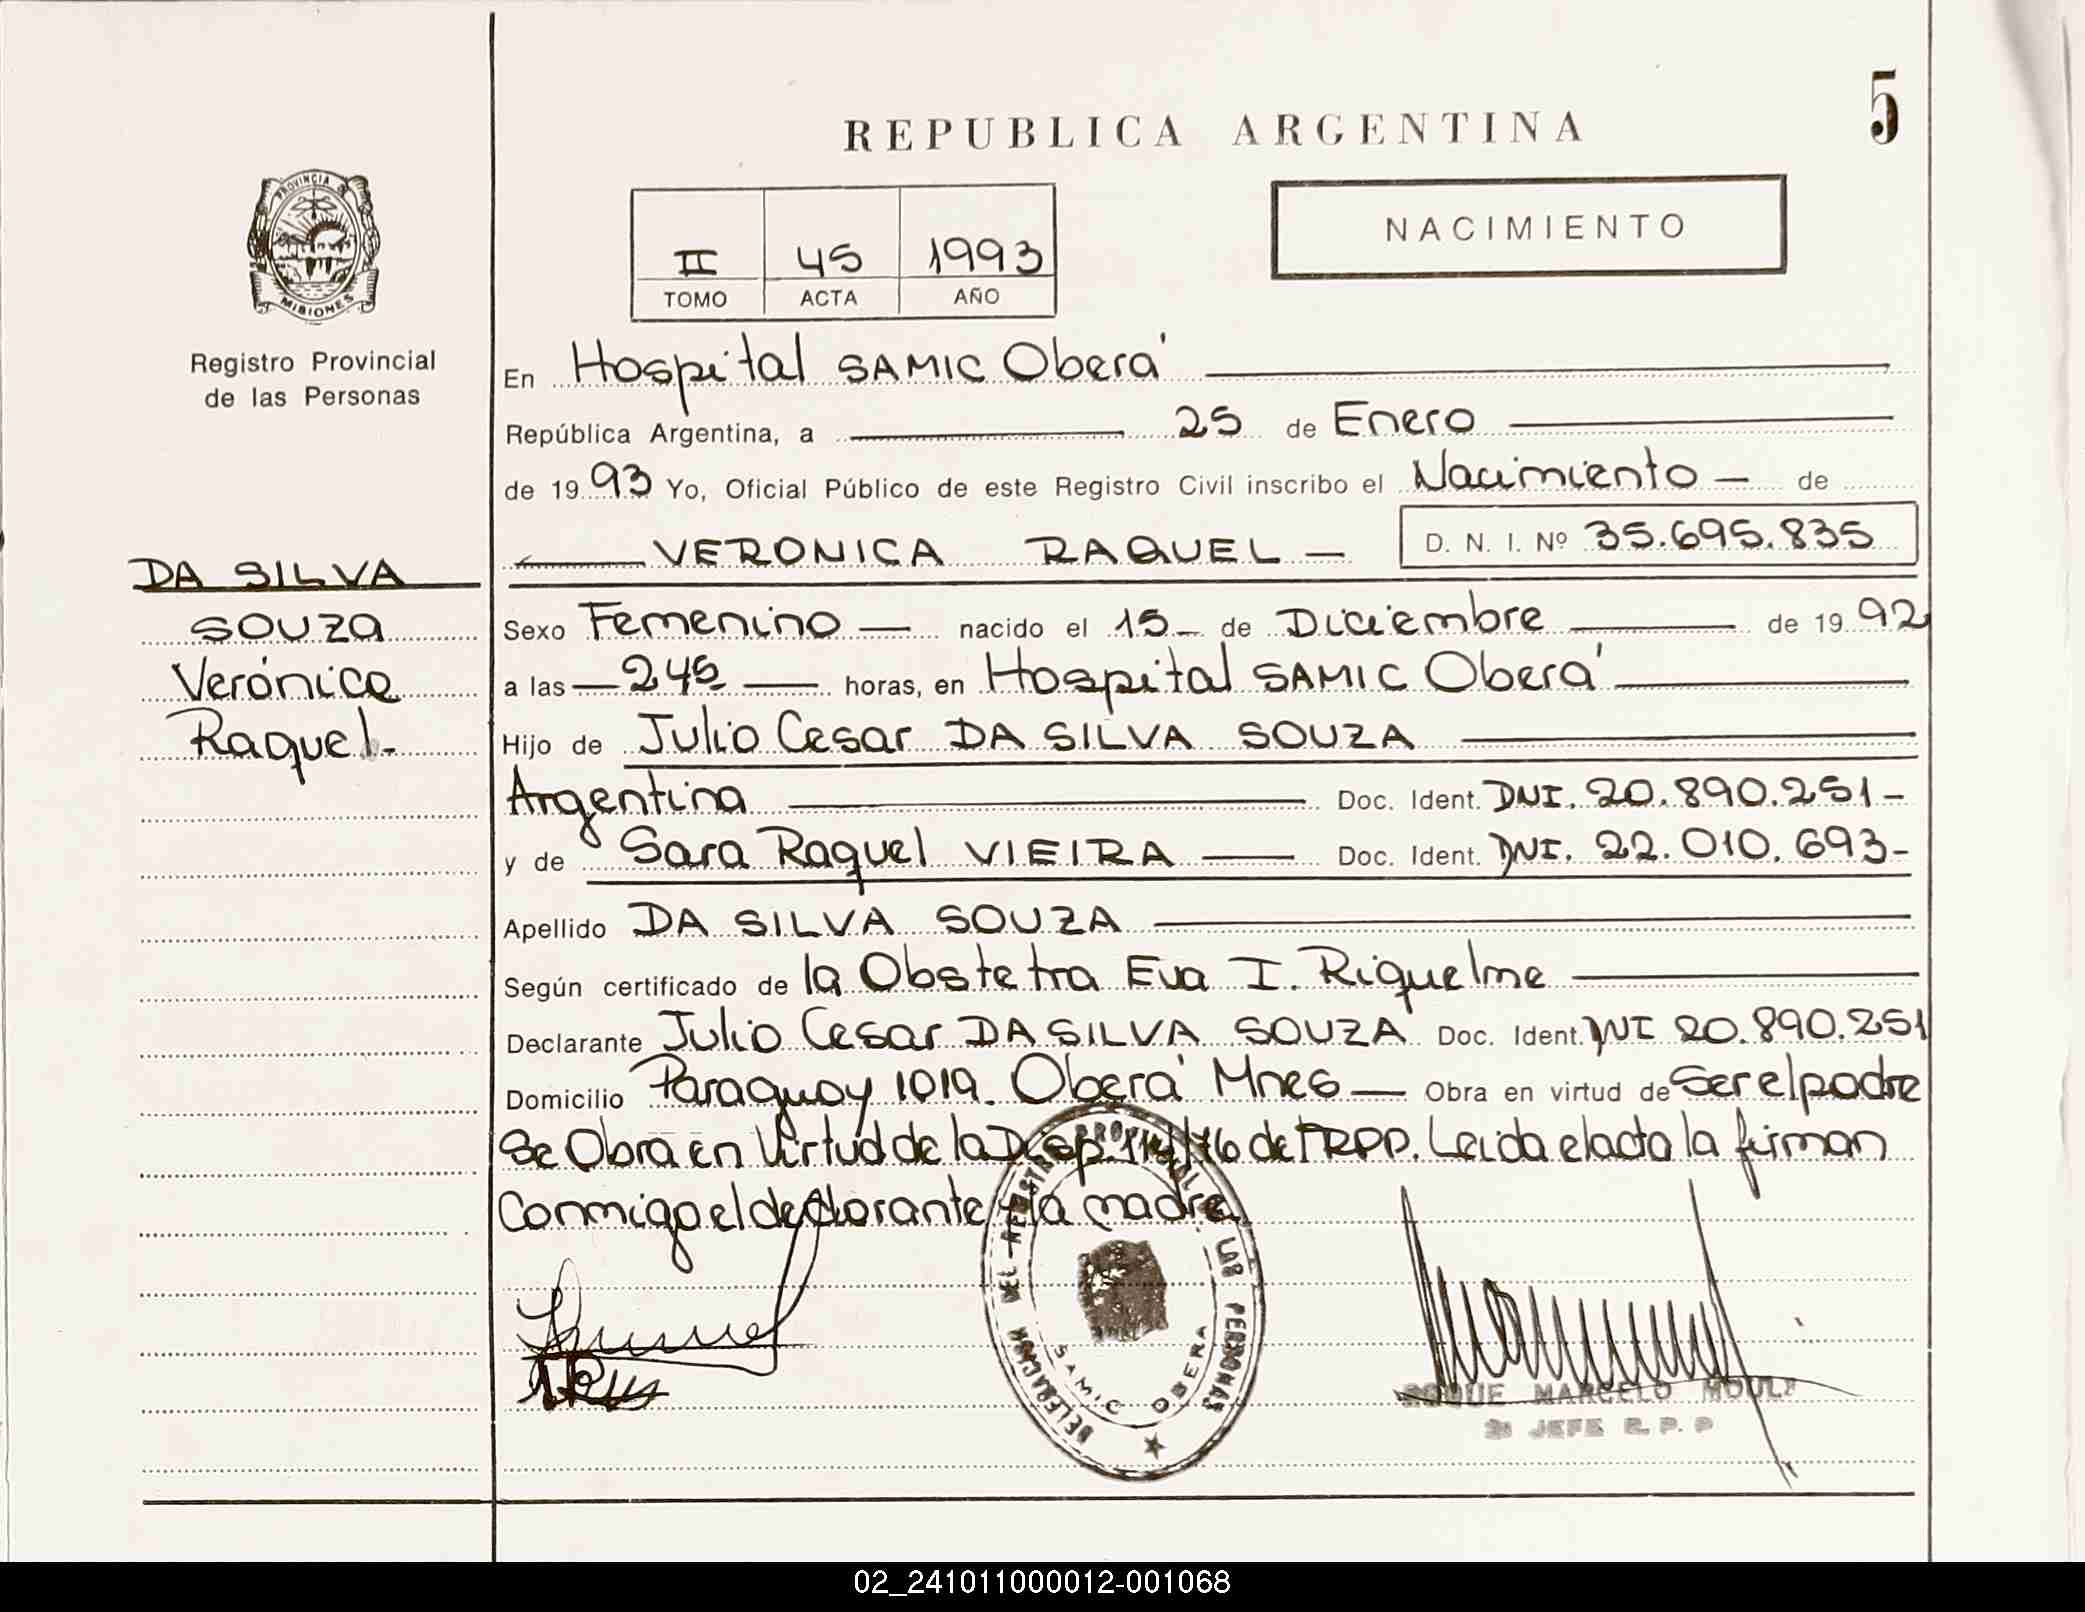 5
REPUBLICA ARGENTINA
PROVINCIA DE
MISIONES
Registro Provincial
de las Personas
NACIMIENTO
II 45 1993
TOMO ACTA AÑO
En Hospital SAMIC Oberá
República Argentina, a 25 de Enero
de 1993 Yo, Oficial Público de este Registro Civil inscribo el Nacimiento — de
VERONICA RAQUEL — D. N. I. Nº 35.695.835
DA SILVA
SOUZA
Verónica
Raquel.-
Sexo Femenino — nacido el 15 - de Diciembre — de 1992
a las — 245 — horas, en Hospital SAMIC Oberá
Hijo de Julio Cesar DA SILVA SOUZA
Argentina — Doc. Ident. DNI. 20.890.251-
y de Sara Raquel VIEIRA — Doc. Ident. DNI. 22.010.693-
Apellido DA SILVA SOUZA
Según certificado de la Obstetra Eva I. Riquelme
Declarante Julio Cesar DA SILVA SOUZA Doc. Ident. DNI 20.890.251
Domicilio Paraguay 1019. Oberá Mnes — Obra en virtud de Ser el padre
Se Obra en Virtud de la Disp. /76 del RPP. Leida el acta la firman
Conmigo el declarante y la madre.
DELEGACION DEL REGISTRO PROVINCIAL LAS PERSONAS
SAMIC OBERA
ROQUE MARCELO
JEFE R. P. P
02_241011000012-001068